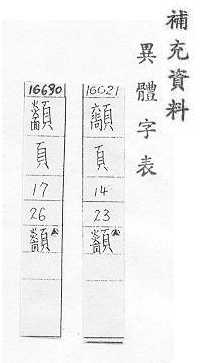 補充資料
異體字表
16021
頁
14
23
16690
頁
17
26